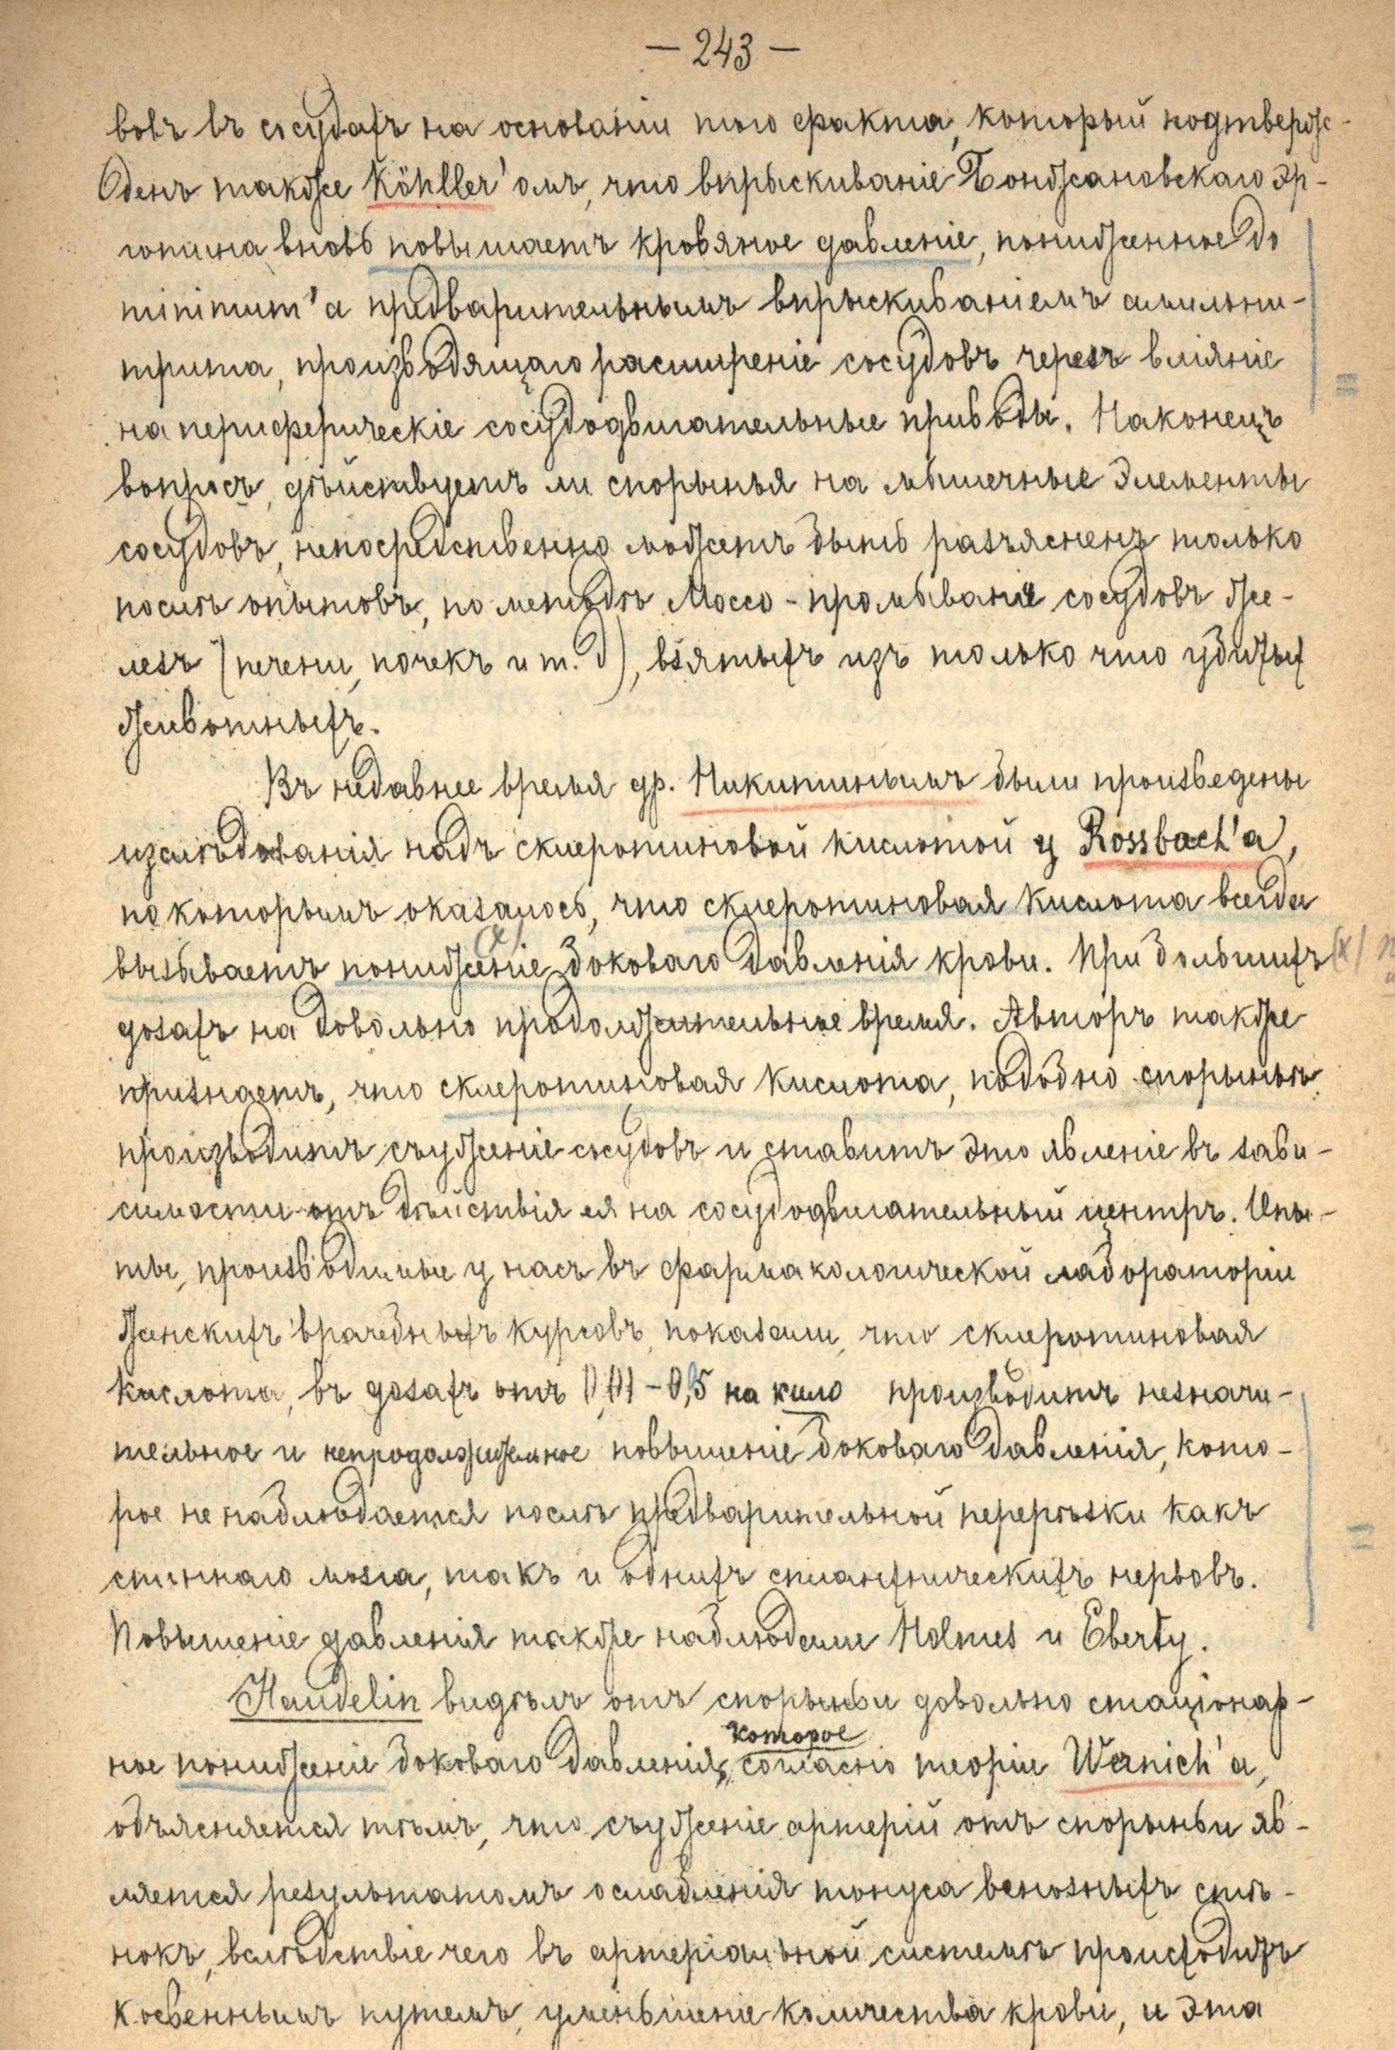 — 243 —
вовъ въ сосудахъ на основаніи того факта, который подтверж-
денъ также Köhller'омъ, что впрыскиваніе Бонжановскаго эр-
готина вновь повышаетъ кровяное давленіе, пониженное до
minimum'а предварительнымъ впрыскиваніемъ амильни-
трита, производящаго расширеніе сосудовъ черезъ вліяніе
на периферическіе сосудодвигательные приводы. Наконецъ
вопросъ, дѣйствуетъ ли спорынья на мышечные элементы
сосудовъ, непосредственно можетъ быть разъясненъ только
послѣ опытовъ, по методѣ Моссо - промыванія сосудовъ же-
лезъ (печени, почекъ и т. д), взятыхъ изъ только что убитых
животныхъ.
Въ недавнее время др. Никитинымъ были произведены
изслѣдованія надъ склеротиновой кислотой у Rossbach'а,
по которымъ оказалось, что склеротиновая кислота всегда
вызываетъ пониженіе (x) боковаго давленія крови. При большихъ (x)
дозахъ на довольно продолжительное время. Авторъ также
признаетъ, что склеротиновая кислота, подобно спорыньѣ,
производитъ съуженіе сосудовъ и ставитъ это явленіе въ зави-
симости отъ дѣйствія ея на сосудодвигательный центръ. Опы-
ты, производимые у насъ въ фармакологической лабораторіи
женскихъ врачебныхъ курсовъ, показали, что склеротиновая
кислота, въ дозахъ отъ 0,01 - 0,5 на кило производитъ незначи-
тельное и непродолжительное повышеніе боковаго давленія, кото-
рое не наблюдается послѣ предварительной перерѣзки какъ
спиннаго мозга, такъ и однихъ спланхническихъ нервовъ.
Повышеніе давленія также наблюдали Holmes и Eberty.
Haudelin видѣлъ отъ спорыньи довольно стаціонар-
ное пониженіе боковаго давленія, которое согласно теоріи Wernich'а,
объясняется тѣмъ, что съуженіе артерій отъ спорыньи яв-
ляется результатомъ ослабленія тонуса венозныхъ стѣ-
нокъ, вслѣдствіе чего въ артеріальной системѣ происходитъ
косвеннымъ путемъ, уменьшеніе количества крови, и эта